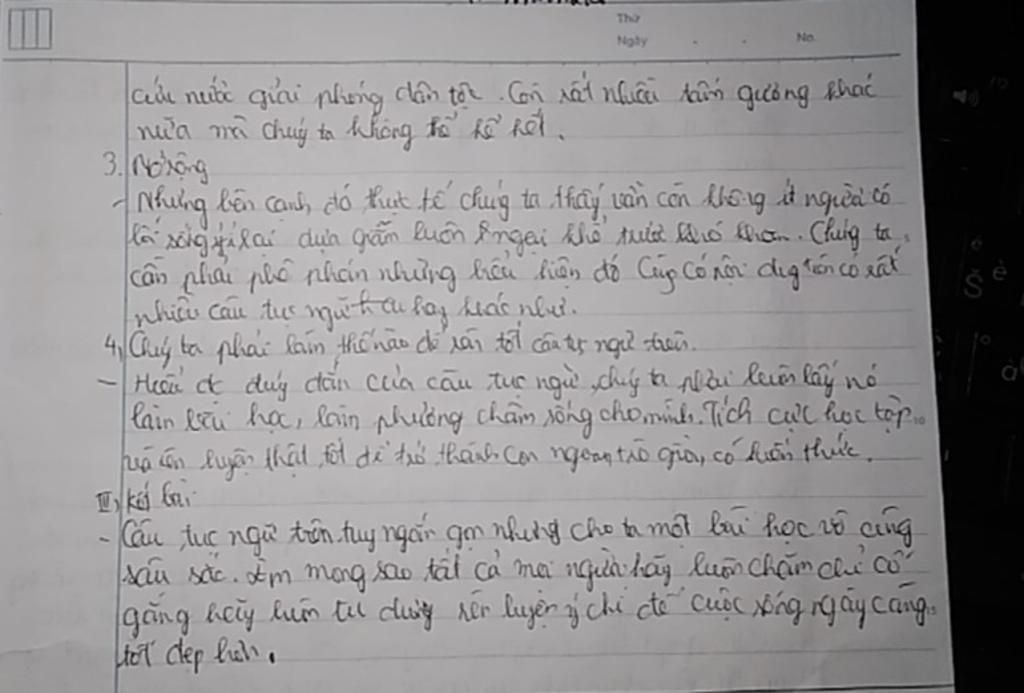 Thứ
Ngày . . No.
cứu nước giải phóng dân tộc. Còn rất nhiều tấm gương khác
nữa mà chúng ta không thể kể hết.
3. Mở rộng
- Nhưng bên cạnh đó thực tế chúng ta thấy vẫn còn không ít người có
lối sống ỷ lại dựa giẫm luôn ngại khổ trước khó khăn. Chúng ta
cần phải phê phán những biểu hiện đó Cũng có nội dung trên có rất
nhiều câu tục ngữ hay khác như.
4, Chúng ta phải làm thế nào để rèn tốt câu tục ngữ trên.
- Hiểu đc đúng đắn của câu tục ngữ, chúng ta phải luôn lấy nó
làm bài học, làm phương châm sống cho mình. Tích cực học tập
và rèn luyện thật tốt để trở thành con ngoan trò giỏi, có kiến thức.
III, Kết bài
- Câu tục ngữ trên tuy ngắn gọn nhưng cho ta một bài học vô cùng
sâu sắc. Em mong sao tất cả mọi người hãy luôn chăm chỉ cố
gắng hãy luôn tu dưỡng rèn luyện ý chí để cuộc sống ngày càng
tốt đẹp hơn.